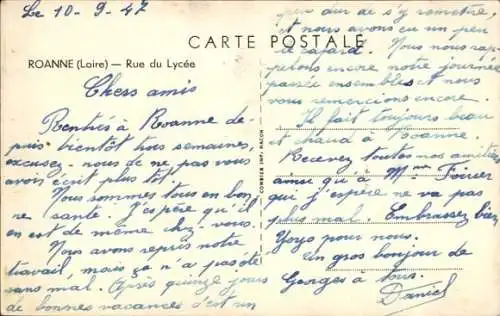 Le 10-9-47
CARTE POSTALE
ROANNE (Loire) — Rue du Lycée
Chers amis
Rentrés à Roanne de-
puis bientôt trois semaines,
excusez-nous de ne pas vous
avoir écrit plus tôt.
Nous sommes tous en bon-
ne santé. J'espère qu'il
en est de même chez-vous.
Nous avons repris notre
travail, mais ça n'a pas été
sans mal. Après quinze jours
de bonnes vacances c'est un
peu dur de s'y remettre,
et nous avons eu un peu
le cafard. Nous nous rap-
pelons encore notre journée
passée ensembles et nous
vous remercions encore.
Il fait toujours beau
et chaud à Roanne.
Recevez toutes mes amitiés
ainsi qu'à Mme
qui, j'espère ne va pas
plus mal. Embrassez bien
Yoyo pour nous.
Un gros bonjour de
Georges à tous.
Daniel
COMBIER IMP. MACON